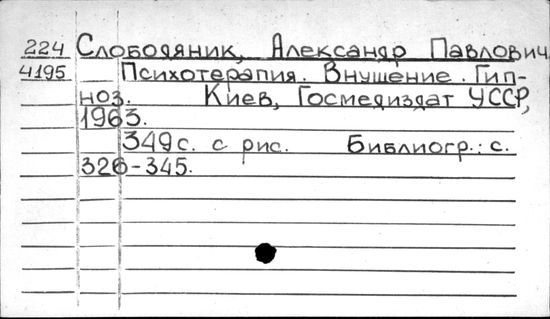 224 Слободяник, Александр Павлович
4195 Психотерапия. Внушение. Гип-
ноз. Киев, Госмедиздат УССР,
1963.
349 с. с рис. Библиогр.: с.
326-345.